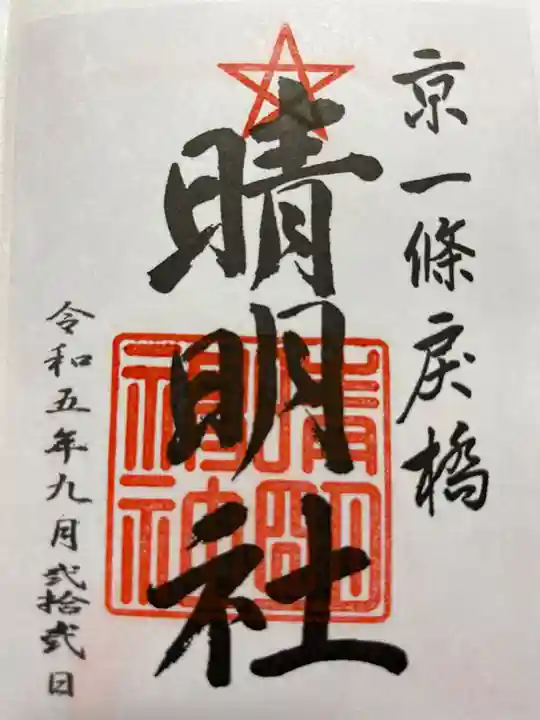 京一條戻橋
晴明社
晴明神社
令和五年九月弐拾弐日